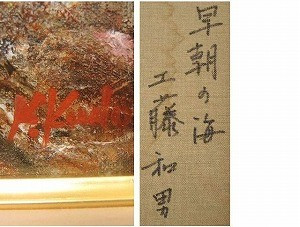 早朝の海
工藤和男